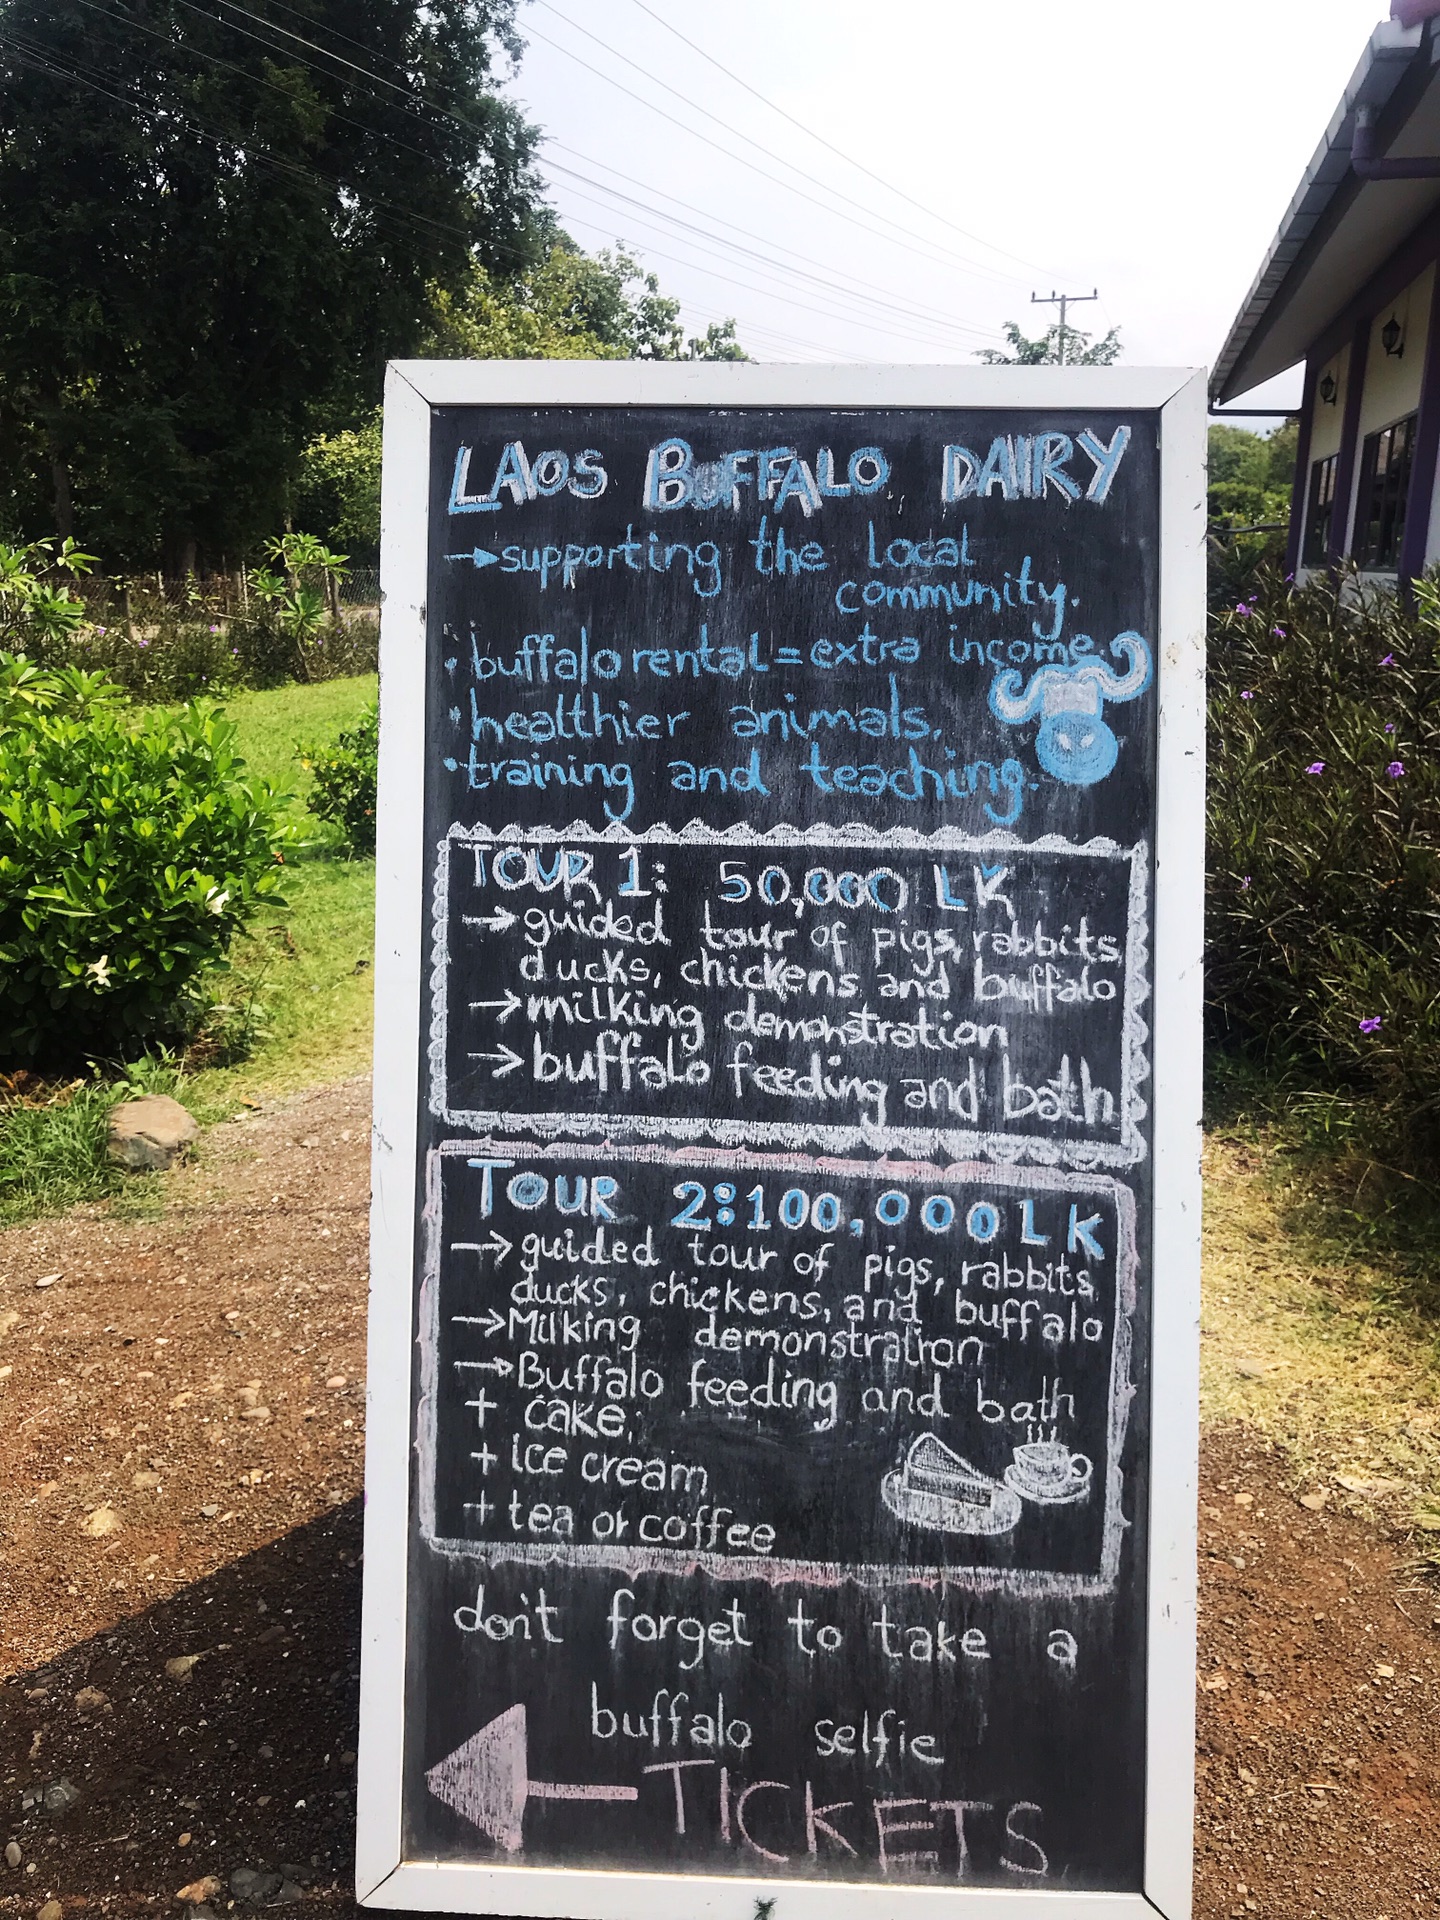 LAOS BUFFALO DAIRY
→supporting the local
community.
• buffalo rental = extra income.
• healthier animals.
• training and teaching.
TOUR 1: 50,000 LK
→ guided tour of pigs, rabbits
ducks, chickens and buffalo
→ milking demonstration
→ buffalo feeding and bath
TOUR 2: 100,000 LK
→ guided tour of pigs, rabbits
ducks, chickens, and buffalo
→ Milking demonstration
→ Buffalo feeding and bath
+ cake,
+ Ice cream
+ tea or coffee
don't forget to take a
buffalo selfie
← TICKETS